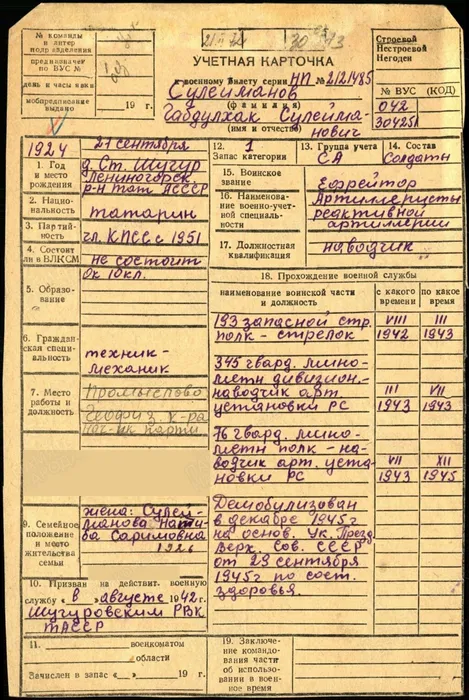 № команды
и литер
подразделения
предназначен
по ВУС №
день и часы явки
мобпредписание
выдано
19 г.
УЧЕТНАЯ КАРТОЧКА
к военному билету серии НП № 2121485
Сулейманов
(фамилия)
Габдулхак Сулейма-
нович
(имя и отчество)
Строевой
Нестроевой
Негоден
№ ВУС (КОД)
042
30425
1924 21 сентября
1. Год
и место
рождения
д. Ст. Шугур
Лениногорск.
р-н Тат АССР
2. Нацио-
нальность
татарин
3. Партий-
ность
чл. КПСС с 1951
4. Состоит
ли в ВЛКСМ
не состоит
5. Образо-
вание
Ок 10 кл.
6. Граждан-
ская специ-
альность
техник-
механик
7. Место
работы и
должность
Промыслово
Геофиз. к-ра
нач-ик парти
9. Семейное
положение и
место
жительства
семьи
жена: Сулей-
манова
Саримовна
1926
10. Призван на действит. военную
службу « в » августе 1942 г.
Шугуровским РВК
ТАССР
11. военкоматом
области
Зачислен в запас « » 19 г.
12. 1
Запас категории
13. Группа учета
СА
14. Состав
Солдаты
15. Воинское
звание
Ефрейтор
16. Наименование
военно-учет-
ной специаль-
ности
Артиллеристы
реактивной
артиллерии
17. Должностная
квалификация
наводчик
18. Прохождение военной службы
наименование воинской части
и должность
с какого
времени
по какое
время
193 запасной стр.
полк - стрелок
VIII
1942
III
1943
345 гвард. мино-
метн дивизион-
наводчик арт.
установки РС
III
1943
VII
1943
76 гвард. мино-
метн полк - на-
водчик арт. уста
новки РС
VII
1943
XII
1945
Демобилизован
в декабре 1945 г
на основ. Ук. През.
Верх. Сов. СССР
от 25 сентября
1945 г по сост.
здоровья.
19. Заключение
командова-
ния части
об использо-
вании в воен-
ное время